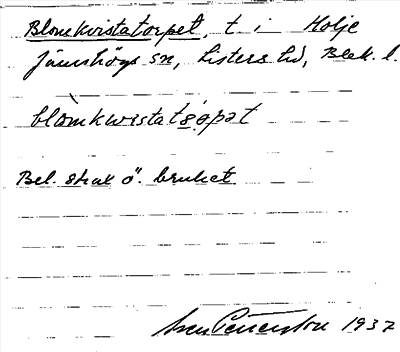 Blomkvistatorpet, t. i Holje
Jämshögs sn, Listers hd, Blek. l.
blòmkwistatså̀pət
Bel. strax ö. bruket
1937